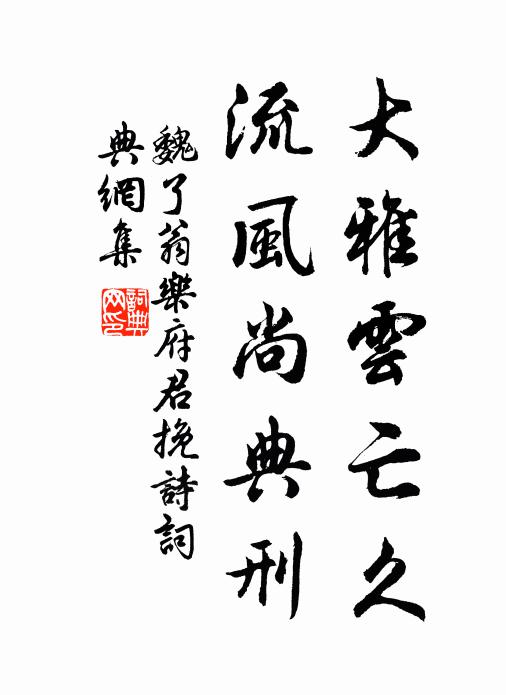 大雅雲亡久
流風尚典刑
魏了翁樂府君挽詩詞
典網集
詞典
网印